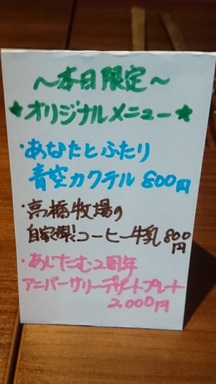 〜本日限定〜
★オリジナルメニュー★
・あなたとふたり
青空カクテル 800円
・高橋牧場の
自家製コーヒー牛乳 800円
・あじたむ2周年
アニバーサリーデザートプレート
2,000円